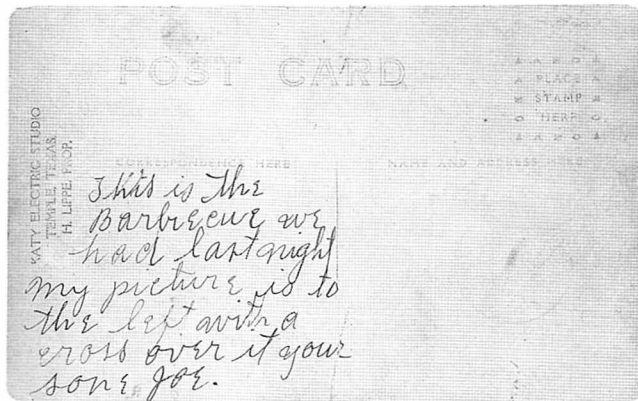 POST CARD
AZO
PLACE
STAMP
HERE
AZO
KATY ELECTRIC STUDIO
TEMPLE, TEXAS.
H. LIPPE, PROP.
CORRESPONDENCE HERE
NAME AND ADDRESS HERE
This is the
Barbiecue we
had last night
My picture is to
the left with a
cross over it your
sone Joe.